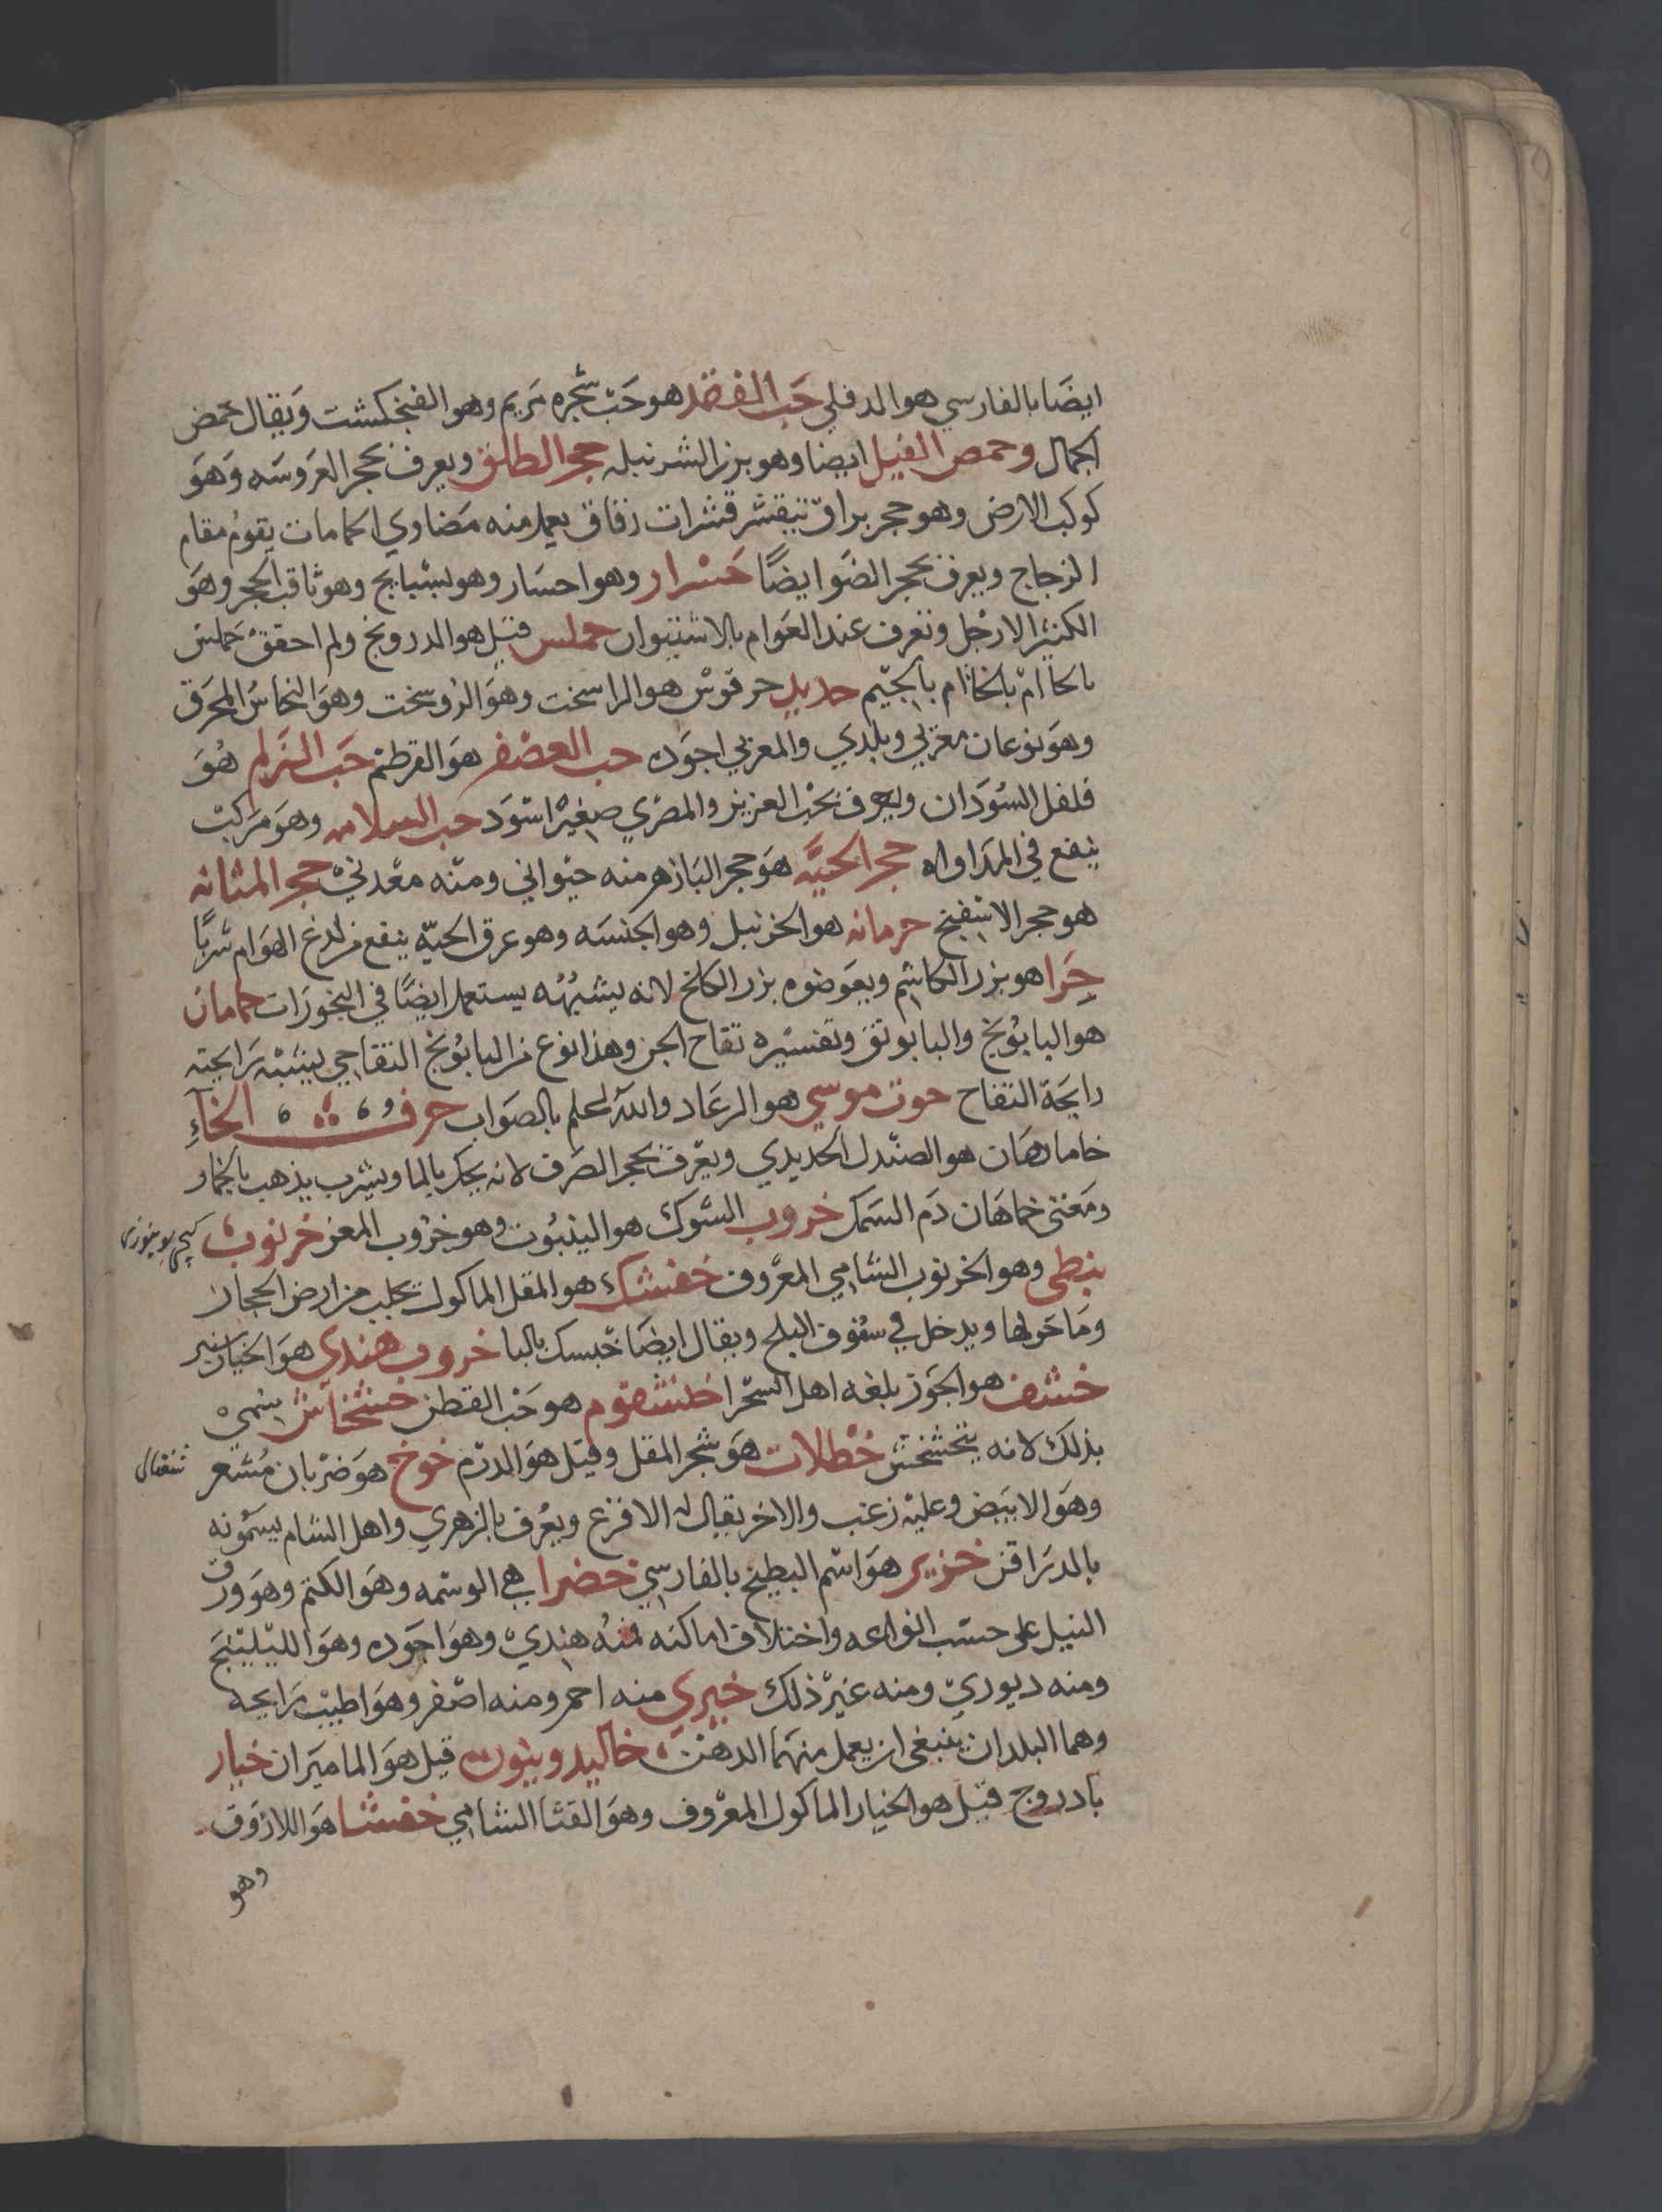 ايضا بالفارسي هو الدفلي حب الفقد هو حب شجره مريم وهو الفنجكشت ويقال حمص
الجمال وحمص الفيل ايضا وهو بزر الشرنبله حجر الطلق ويعرف بحجر العروسه وهو
كوكب الارض وهو حجر براق يتقشر قشرات رقاق يعمل منه مضاوي الحمامات يقوم مقام
الزجاج ويعرف بحجر الضوا ايضا وهو احسار وهو بسبايج وهو ثاقب الحجر وهو
الكثير الارجل وتعرف عند العوام بالاشتيوان حملس قيل هو الدرونج ولم احقق حملس
بالحا ام بالخا ام بالجيم حديد حرقوس هو الراسخت وهو الروسخت وهو النحاس المحرق
وهو نوعان مغربي وبلدي والمغربي اجوده حب العصفر هو القرطم حب الزلم هو
فلفل السودان ويعرف بحب العزيز والمصري صغير اسود حب السلامه وهو مركب
ينفع في المداواه حجر الحيه هو حجر البازهر منه حيواني ومنه معدني حجر المثانه
هو حجر الاسفنج حرمانه هو الخزنبل وهو الجنسه وهو عرق الحيه ينفع من لدغ الهوام شربا
حزا هو بزر الكاشم ويعوضوه بزر الكلخ لانه يشبهه يستعمل ايضا في البخورات حمامان
هو البابونج والبابونق وتفسيره تفاح الجن وهذا نوع من البابونج التفاحي يشبه رايحته
رايحة التفاح حوت موسي هو الرعاد والله اعلم بالصواب حرف الخاء
خاماهان هو الصندل الحديدي ويعرف بحجر الصرف لانه يحك بالما ويشرب يذهب بالخمار
ومعني خماهان دم السمك خروب الشوك هو الينبوت وهو خروب المعز خرنوب
نبطي وهو الخرنوب الشامي المعروف خفشك هو المقل الماكول يجلب من ارض الحجاز
وما حولها ويدخل في سفوف البلح ويقال ايضا خبسك بالبا خروب هندي هو الخيار شنبر
خشف هو الجوز بلغه اهل السحرا خشفوم هو حب القطن خشخاش سمي
بذلك لانه يتخشخش خطلات هو شجر المقل وقيل هو الدوم خوخ هو ضربان مشعر
وهو الابيض وعليه زغب والاخر يقال له الاقرع ويعرف بالزهري واهل الشام يسمونه
بالدراقن خزبر هو اسم البطيخ بالفارسي خضرا هي الوسمه وهو الكتم وهو ورق
النيل على حسب انواعه واختلاف اماكنه فمنه هندي وهو اجوده وهو الليلينج
ومنه ديوري ومنه غير ذلك خيري منه احمر ومنه اصفر وهو اطيب رايحه
وهما البلدان ينبغي ان يعمل منهما الدهن خاليدونيون قيل هو الماميران خيار
بادروج قيل هو الخيار الماكول المعروف وهو القثا الشامي خفشا هو اللازوق
وهو